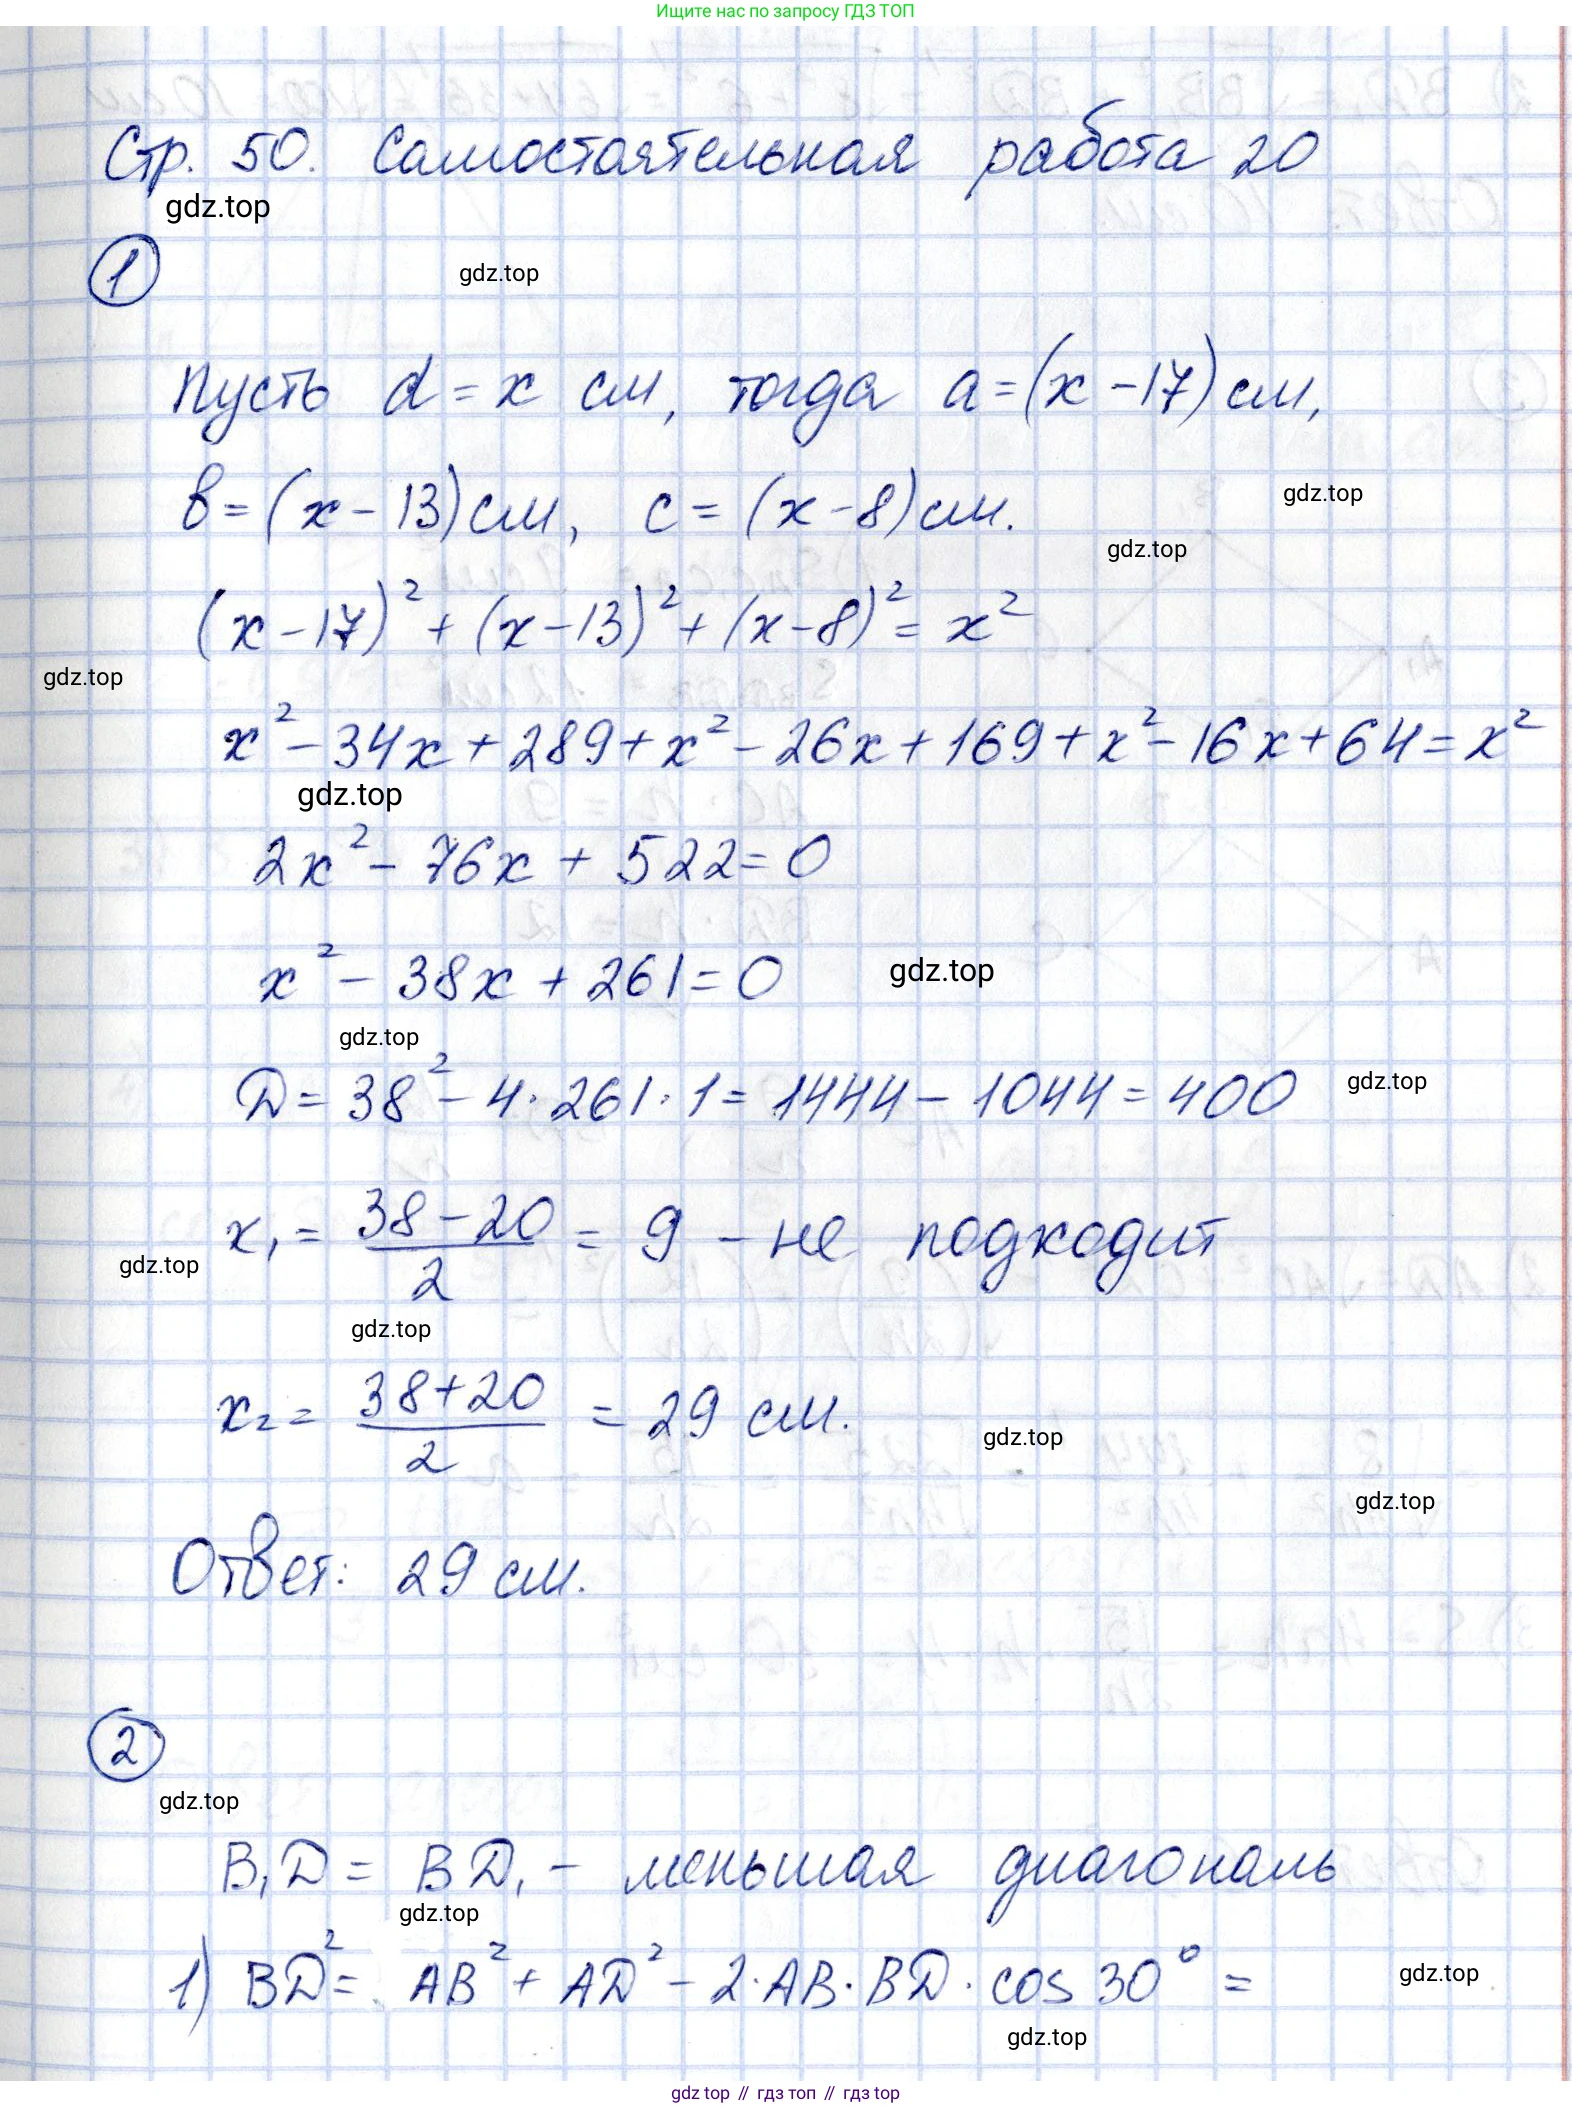 Ищите нас по запросу ГДЗ ТОП
Стр. 50. Самостоятельная работа 20
gdz.top
1
gdz.top
Пусть d = x см, тогда a = (x - 17) см,
b = (x - 13) см, c = (x - 8) см.
gdz.top
gdz.top
(x - 17)² + (x - 13)² + (x - 8)² = x²
gdz.top
x² - 34x + 289 + x² - 26x + 169 + x² - 16x + 64 = x²
gdz.top
2x² - 76x + 522 = 0
x² - 38x + 261 = 0
gdz.top
gdz.top
D = 38² - 4 · 261 · 1 = 1444 - 1044 = 400
gdz.top
x₁ = (38 - 20)/2 = 9 - не подходит
gdz.top
gdz.top
x₂ = (38 + 20)/2 = 29 см.
gdz.top
gdz.top
Ответ: 29 см.
2
gdz.top
B₁D = BD₁ - меньшая диагональ
gdz.top
1) BD² = AB² + AD² - 2 · AB · BD · cos 30° =
gdz.top
gdz.top
gdz top // гдз топ // гдз top